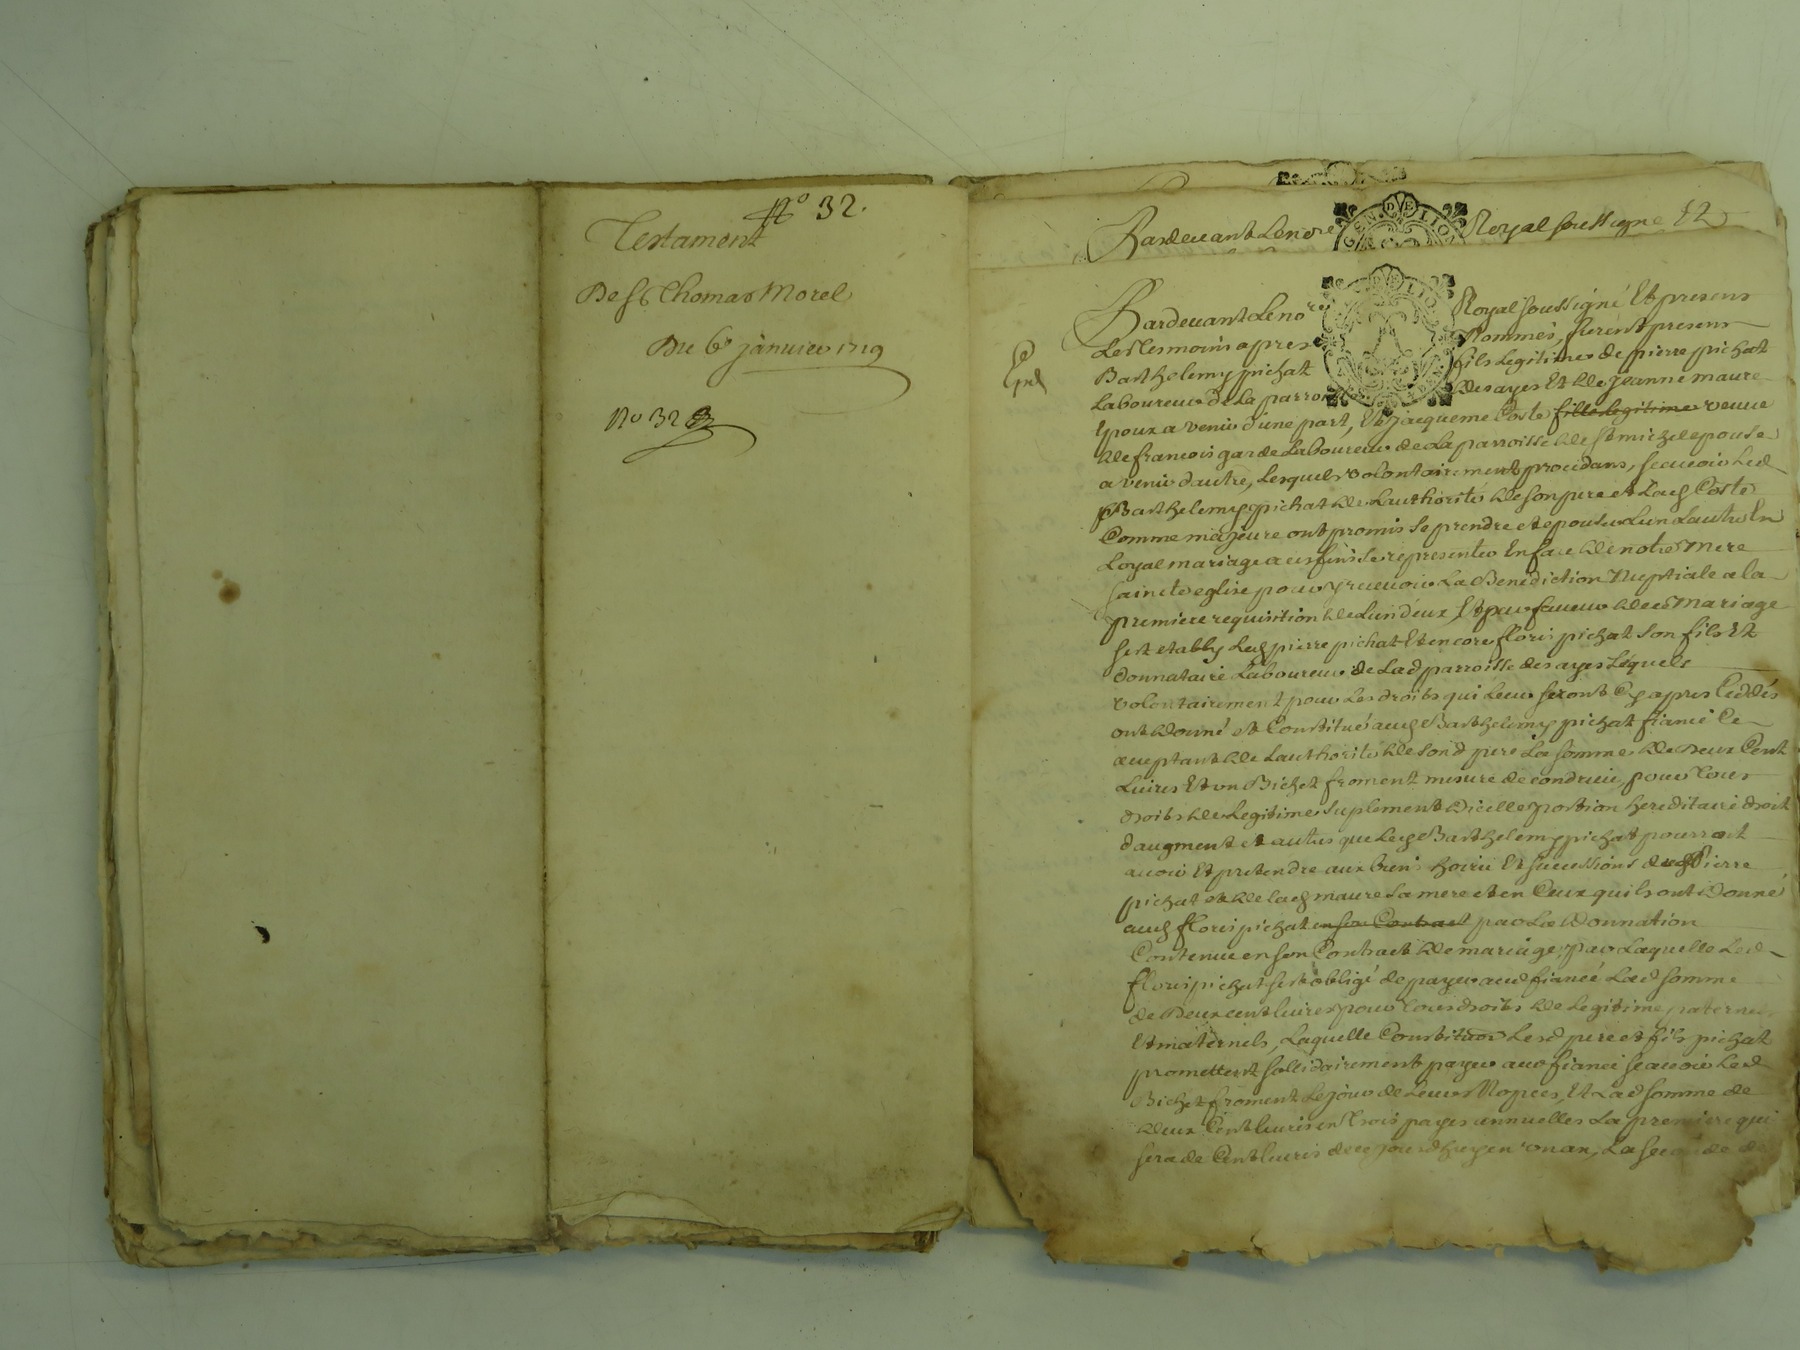 N° 32.
Testament
De Sr Thomas Morel
Du 6e janvier 1719
No 32
Pardevant Le no.re Royal soussigné
GEN. DE LION
Expd
Pardevant Le no.re Royal soussigné Et presens
Les tesmoins apres Nommés, furent presens
Barthelemy pichat fils Legitime de pierre pichat
Laboureur de La parroisse des ayes Et de jeanne maure
Epoux a venir d'une part, Et jacqueme Coste fille legitime veuve
de francois garde Laboureur de La parroisse de St michel epouse
a venir dautre, Lesquels volontairement procedans, scavoir Led
Barthelemy pichat de Lauthorité de son pere et Lad Coste
Comme majeure ont promis se prendre et epouser Lun Lautre En
Loyal mariage a ces fins se representer En face de notre Mere
saincte eglise pour y recevoir La Benediction Nuptiale a la
premiere requisition de Lun deux, Et par faveur de ce Mariage
sest etably Led pierre pichat Et encore floris pichat son fils Et
donnataire Laboureur de Lad parroisse des ayes Lequels
volontairement pour Les droits qui Leur seront Cy apres Ceddés
ont donné et Constitué aud Barthelemy pichat fiancé Ce
acceptant de Lauthorité de sond pere La somme de Deux Cent
Livres Et un Bichet froment mesure de condrieu, pour tous
droits de Legitime suplement Dicelle portion hereditaire droit
daugment et autres que Led Barthelemy pichat pourroit
avoir Et pretendre aux biens hoirie Et successions dud Pierre
pichat et de lad maure sa mere et en Ceux quils ont Donné
aud floris pichat en son Contract par La Donnation
Contenue en son Contract de mariage, par Laquelle Led
floris pichat sest obligé de payer aud fiancé Lad somme
de Deux cent livres pour tous droits de Legitime paternels
Et maternels, Laquelle Constituon Lesd pere et fils pichat
promettent solidairement payer aud fiancé scavoir Led
Bichet froment Le jour de Leurs Nopces, Et Lad somme de
deux Cent livres en trois payes annuelles La premiere qui
sera de Cent livres de ce jourdhuy en un an, La seconde de